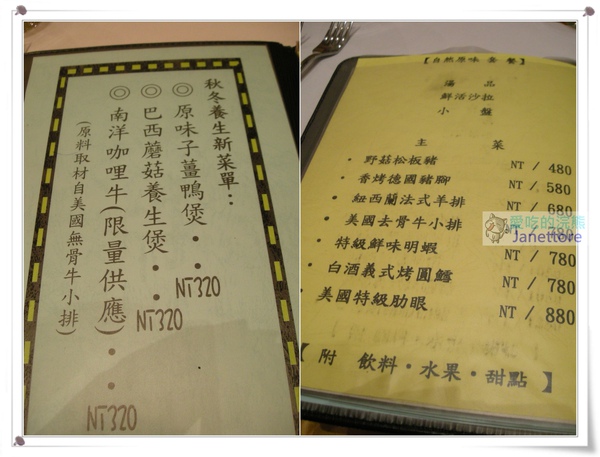 秋冬養生新菜單：
◎原味子薑鴨煲・・NT320
◎巴西蘑菇養生煲・・NT320
◎南洋咖哩牛(限量供應)・・NT320
(原料取材自美國無骨牛小排)
【自然原味 套 餐】
湯 品
鮮活沙拉
小 盤
主 菜
・野菇松板豬 NT / 480
・香烤德國豬腳 NT / 580
・紐西蘭法式羊排 NT / 680
・美國去骨牛小排 NT / 780
・特級鮮味明蝦 NT / 780
・白酒義式烤圓鱈 NT / 780
・美國特級肋眼 NT / 880
【 附 飲料・水果・甜點 】
愛吃的浣熊
Janettore